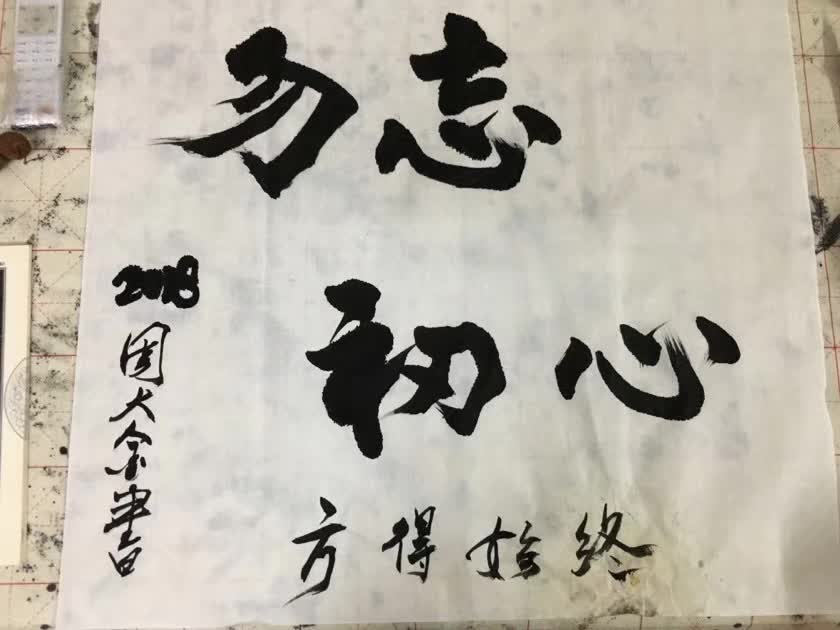 勿忘
初心
方得始终
2018
周大金书